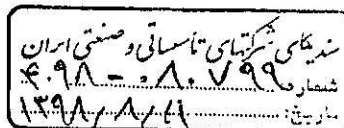 سندیکای شرکتهای تأسیساتی و صنعتی ایران
شماره: ۴۰۹۸-۰۸۰۷۹۹
تاریخ: ۱۳۹۸/۸/۲۱